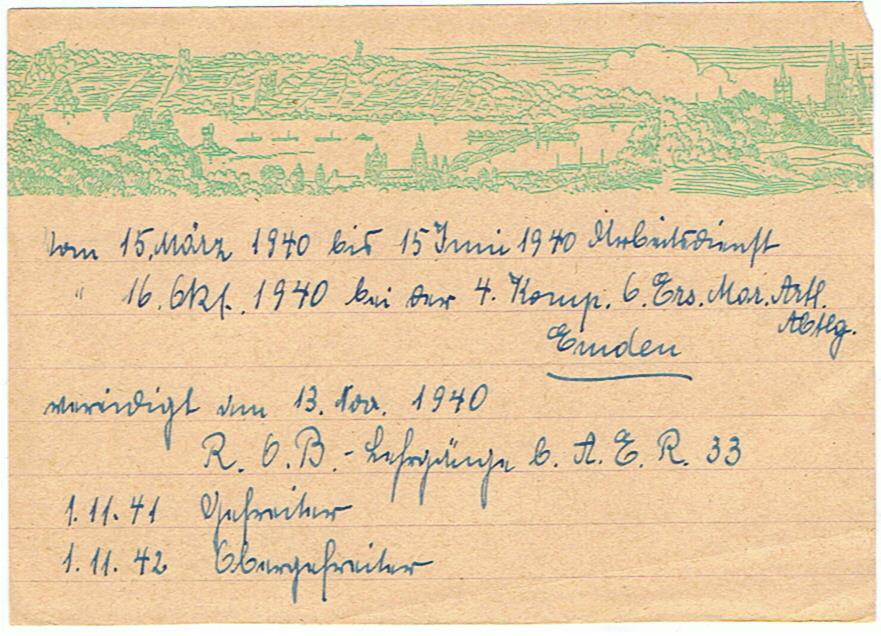 Vom 15. März 1940 bis 15 Juni 1940 Arbeitsdienst
" 16. Okt. 1940 bei der 4. Komp. 6. Ers. Mar. Artl. Abtlg.
Emden
vereidigt am 13. Nov. 1940
R. O. B. - Lehrgänge b. A. E. R. 33
1.11.41 Gefreiter
1.11.42 Obergefreiter